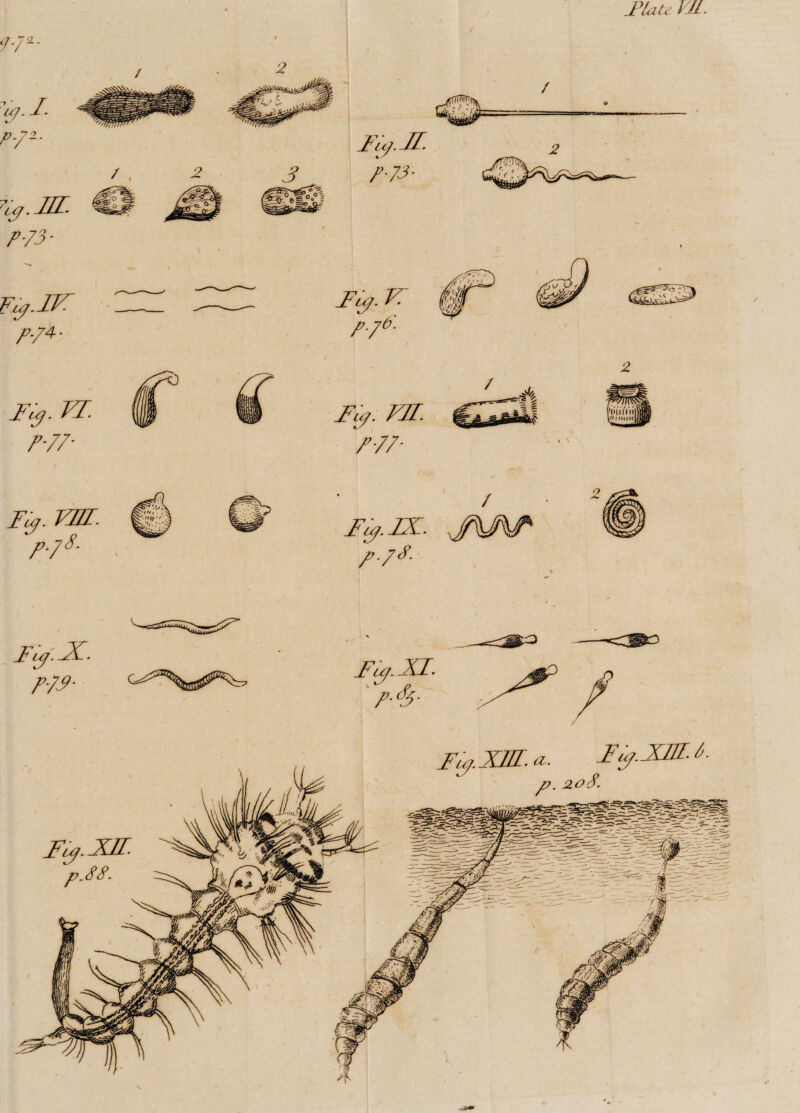 Plate VII.
g.72.
1 2
ig. I.
p.72.
1
Fig. II.
p.73.
2
1 2 3
ig. III.
p.73.
Fig. IV.
p.74.
Fig. V.
p.76.
Fig. VI.
p.77.
1 2
Fig. VII.
p.77.
Fig. VIII.
p.78.
1 2
Fig. IX.
p.78.
Fig. X.
p.79.
Fig. XI.
p.85.
Fig. XII.
p.88.
Fig. XIII. a. Fig. XIII. b.
p. 208.